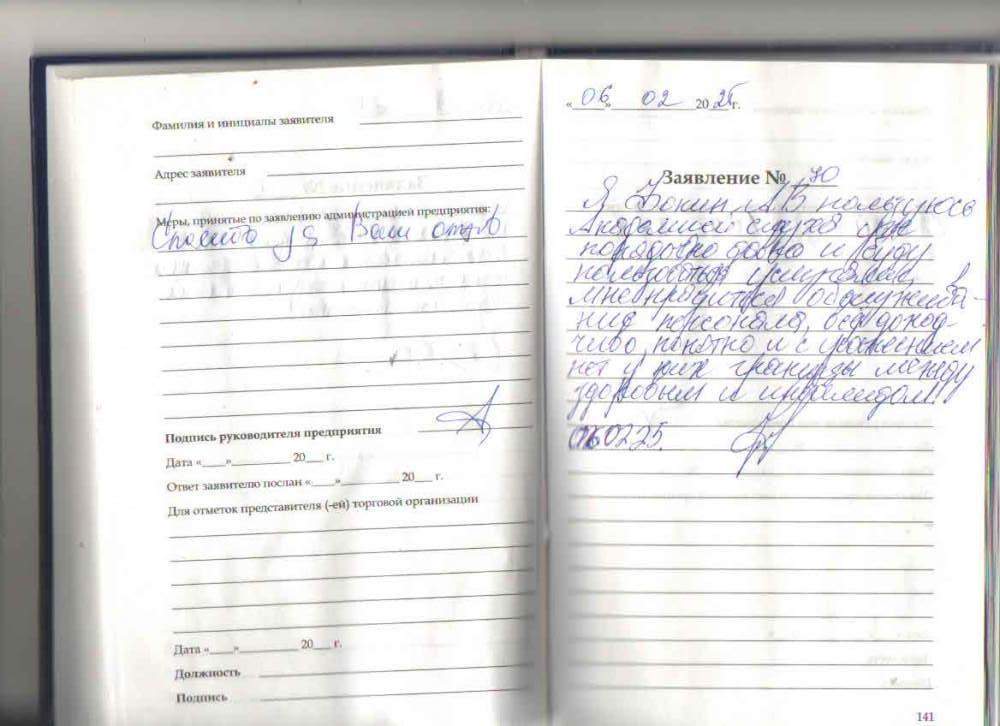 Фамилия и инициалы заявителя
Адрес заявителя
Меры, принятые по заявлению администрацией предприятия:
Спасибо за Ваш отзыв
Подпись руководителя предприятия
Дата «___»__________ 20___ г.
Ответ заявителю послан «___»__________ 20___ г.
Для отметок представителя (-ей) торговой организации
Дата «___»__________ 20___ г.
Должность
Подпись
«06» 02 2025 г.
Заявление № 70
Я АВ пользуюсь
Академией слуха уже
порядочно давно и буду
пользоваться услугами,
мне нравится обслужива-
ние персонала, все доход-
чиво, понятно и с уважением
нет у них границы между
здоровым и инвалидом
060225.
141